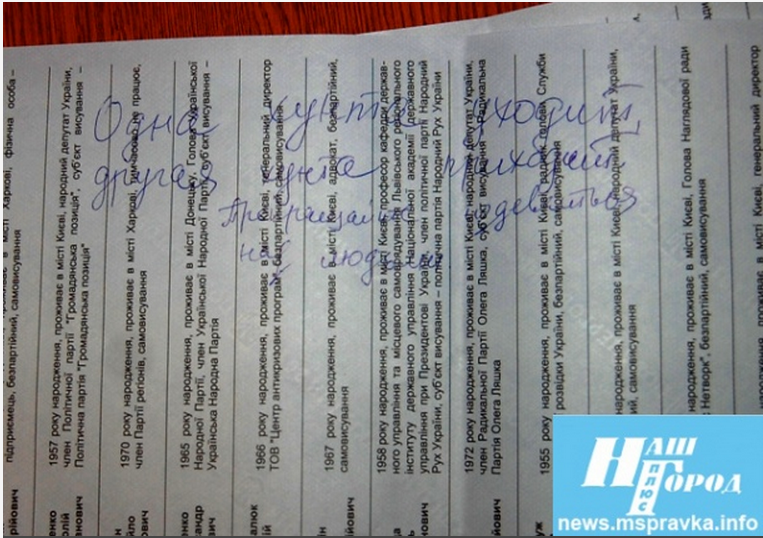 Одна хунта уходит,
другая хунта приходит
Прекращайте издеваться
над людьми!
рійович
підприємець, безпартійний, самовисування
1957 року народження, проживає в місті Києві, народний депутат України,
член Політичної партії "Громадянська позиція", суб'єкт висування –
Політична партія "Громадянська позиція"
1970 року народження, проживає в місті Харкові, тимчасово не працює,
член Партії регіонів, самовисування
1965 року народження, проживає в місті Донецьку, Голова Української
Народної Партії, член Української Народної Партії, суб'єкт висування –
Українська Народна Партія
1966 року народження, проживає в місті Києві, генеральний директор
ТОВ "Центр антикризових програм", безпартійний, самовисування
1967 року народження, проживає в місті Києві, адвокат, безпартійний,
самовисування
1958 року народження, проживає в місті Києві, професор кафедри держав-
ного управління та місцевого самоврядування Львівського регіонального
інституту державного управління Національної академії державного
управління при Президентові України, член політичної партії Народний
Рух України, суб'єкт висування – політична партія Народний Рух України
1972 року народження, проживає в місті Києві, народний депутат України,
член Радикальної Партії Олега Ляшка, суб'єкт висування – Радикальна
Партія Олега Ляшка
1955 року народження, проживає в місті Києві, радник голови Служби
розвідки України, безпартійний, самовисування
народження, проживає в місті Києві, народний депутат України,
ий, самовисування
народження, проживає в місті Києві, Голова Наглядової ради
Нетворк", безпартійний, самовисування
народження, проживає в місті Києві, генеральний директор
НАШ
ПЛЮС
ГОРОД
news.mspravka.info